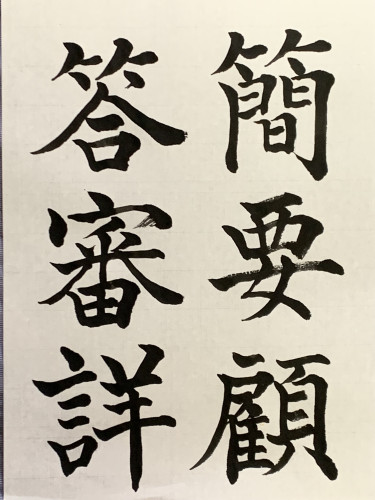 簡要顧
答審詳